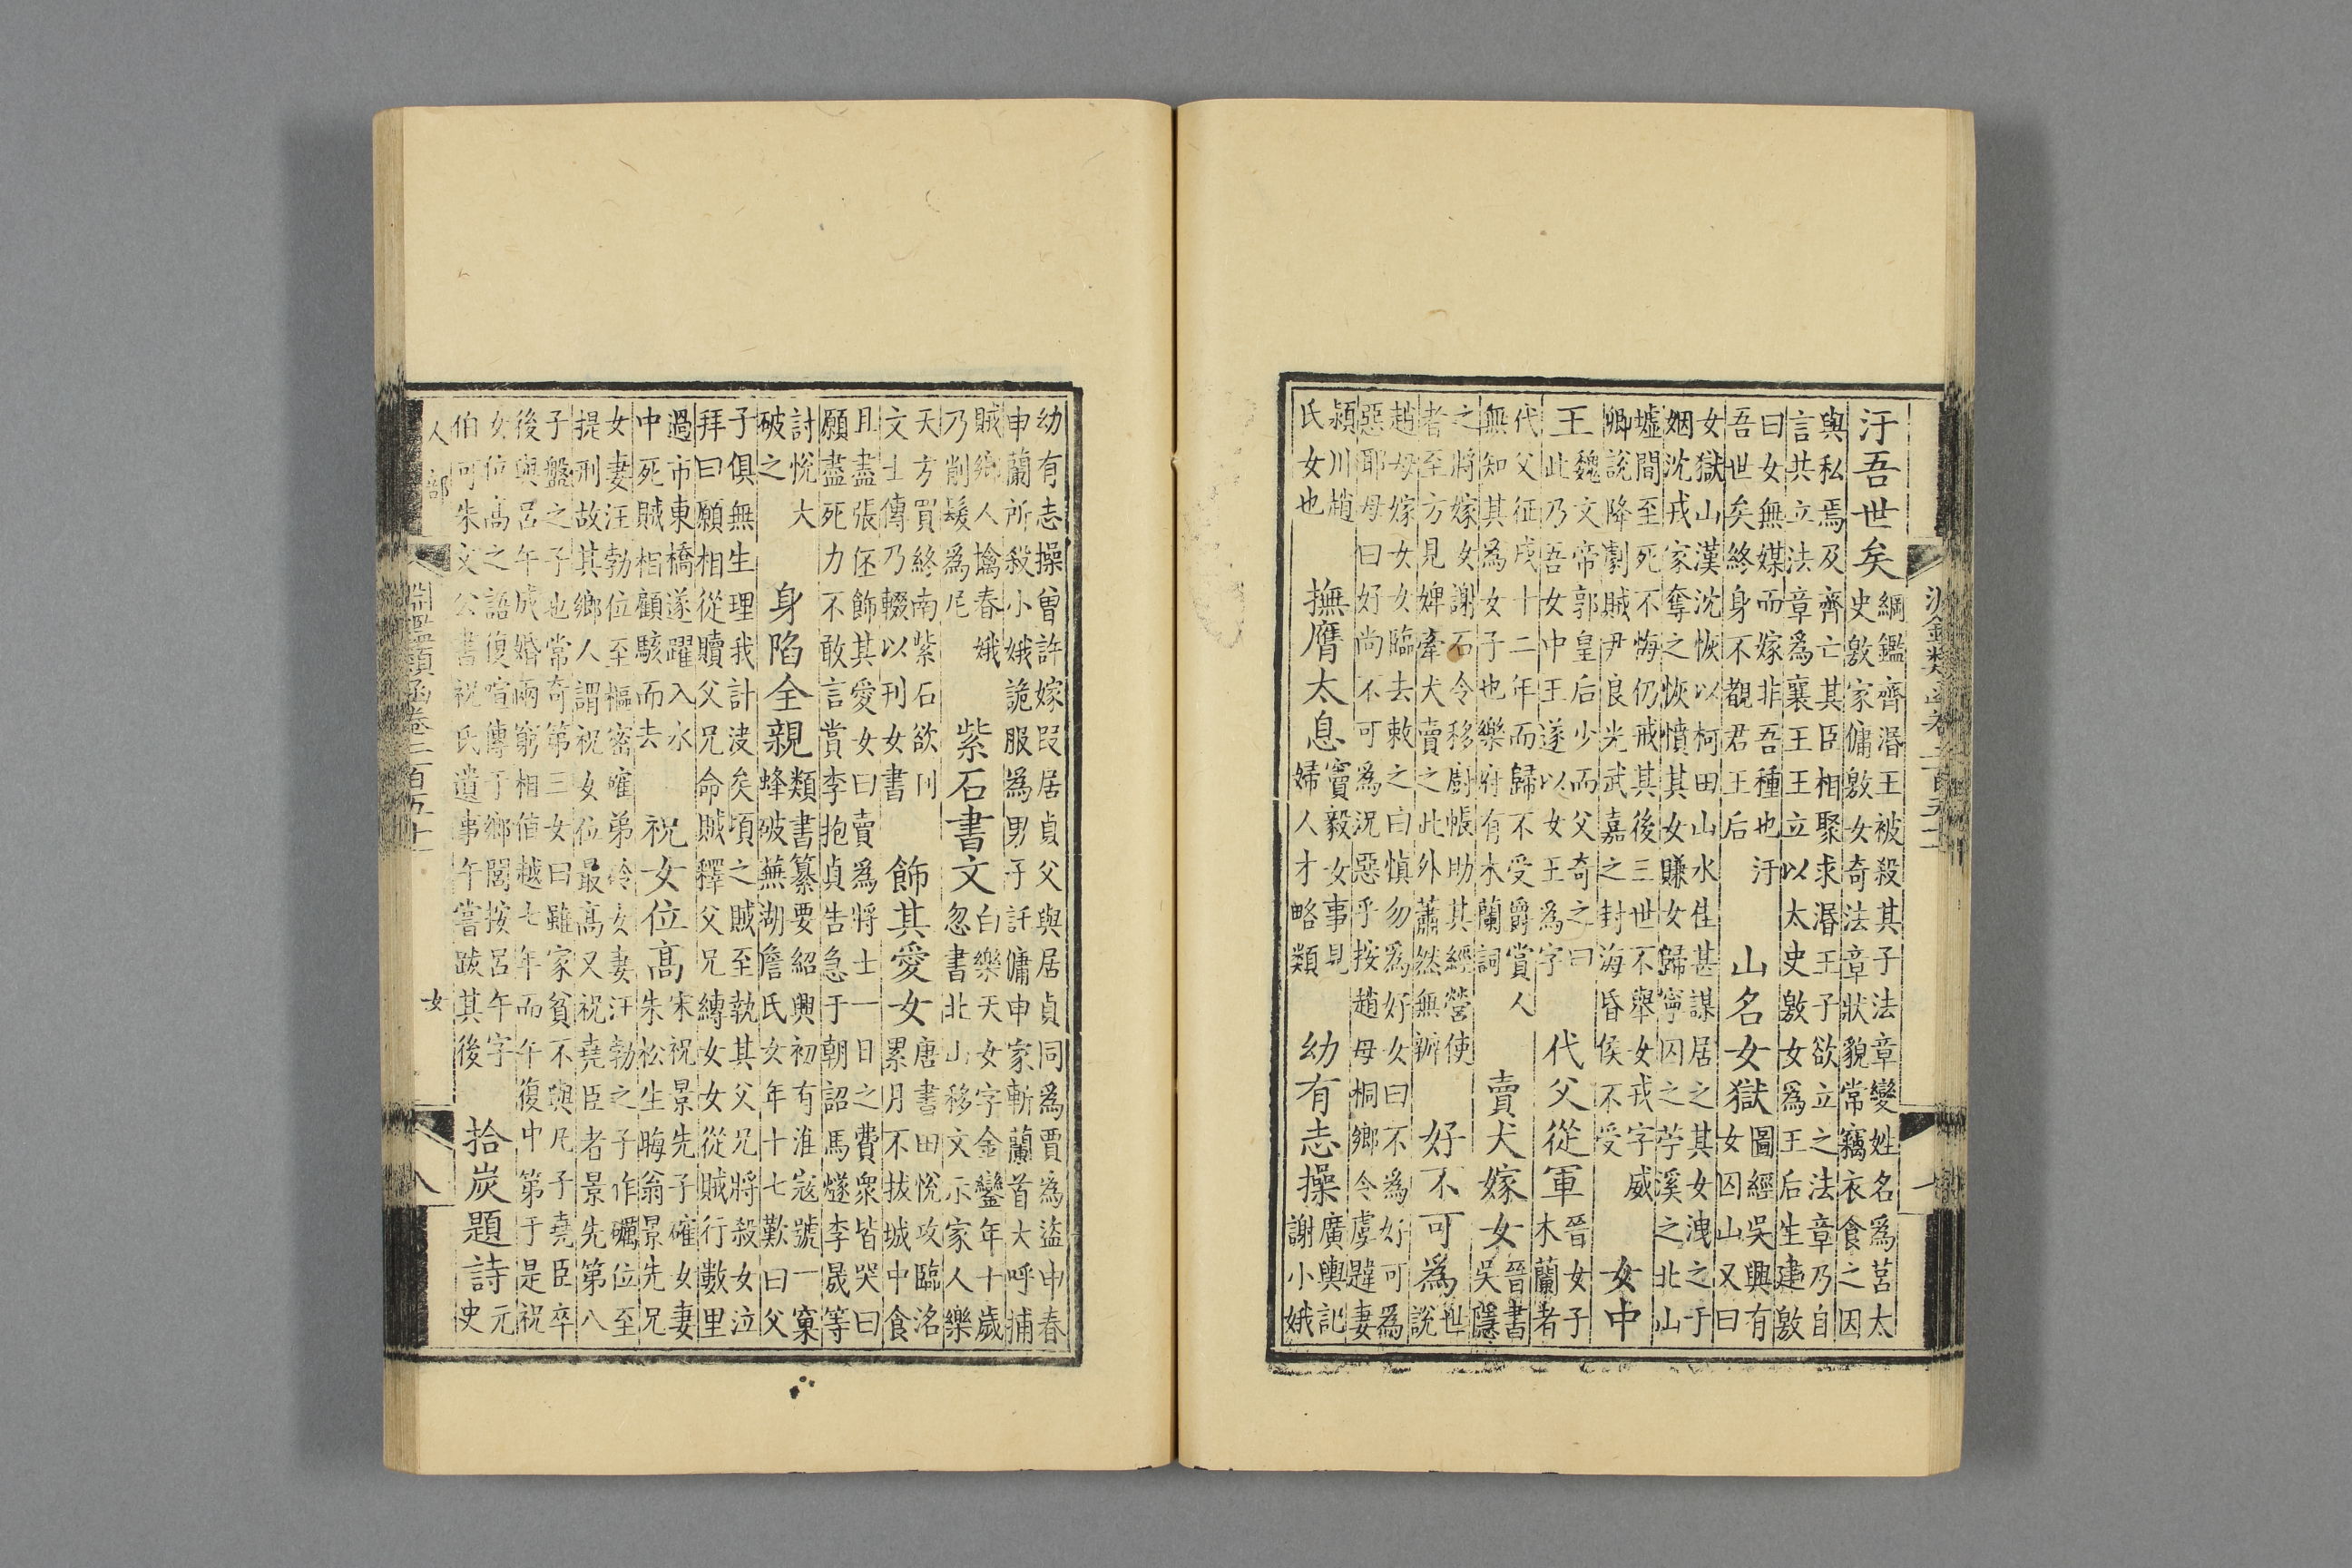 汙吾世矣
綱鑑齊湣王被殺其子法章變姓名爲莒太
史敫家傭敫女奇法章狀貌常竊衣食之因
與私焉及齊亡其臣相聚求湣王子欲立之法章乃自
言共立法章爲襄王王立以太史敫女爲王后生建敫
曰女無媒而嫁非吾種也汙
吾世矣終身不覩君王后
山名女獄
圖經吳興有
女囚山又曰
女獄山漢沈恢以柯田山水佳甚謀居之其女洩之于
姻沈戎家奪之恢憤其女賺女歸寧囚之苧溪之北山
墟間至死不悔仍戒其後三世不舉女戎字威
卿說降劇賊尹良光武嘉之封海昏侯不受
女中
王
魏文帝郭皇后少而父奇之曰
此乃吾女中王遂以女王爲字
代父從軍
晉女子
木蘭者
代父征戍十二年而歸不受爵賞人
無知其爲女子也樂府有木蘭詞
賣犬嫁女
晉書
吳隱
之將嫁女謝石令移廚帳助其經營使
者至方見婢牽犬賣之此外蕭然無辦
好不可爲
世
說
趙母嫁女女臨去敕之曰慎勿爲好女曰不爲好可爲
惡耶母曰好尚不可爲況惡乎按趙母桐鄉令虞韙妻
潁川趙
氏女也
撫膺太息
竇毅女事見
婦人才略類
幼有志操
廣輿記
謝小娥
幼有志操曾許嫁段居貞父與居貞同爲賈爲盜申春
申蘭所殺小娥詭服爲男子託傭申家斬蘭首大呼捕
賊鄉人擒春娥
乃削髮爲尼
紫石書文
白樂天女字金鑾年十歲
忽書北山移文示家人樂
天方買終南紫石欲刊
文士傳乃輟以刊女書
飾其愛女
唐書田悅攻臨洺
累月不拔城中食
且盡張伾飾其愛女曰賣爲將士一日之費衆皆哭曰
願盡死力不敢言賞李抱貞告急于朝詔馬燧李晟等
討悅大
破之
身陷全親
類書纂要紹興初有淮寇號一窠
蜂破蕪湖詹氏女年十七歎曰父
子俱無生理我計決矣頃之賊至執其父兄將殺女泣
拜曰願相從贖父兄命賊釋父兄縛女女從賊行數里
過市東橋遂躍入水
中死賊相顧駭而去
祝女位高
宋祝景先子確女妻
朱松生晦翁景先兄
女妻汪勃位至樞密確弟女妻汪勃之子作礪位至
提刑故其鄉人謂祝女位最高又祝堯臣者景先第八
子盤之子也常奇第三女曰雖家貧不與凡子堯臣卒
後與呂午成婚兩窮相値越七年而午復中第于是祝
女位高之語復喧傳于鄉閭按呂午字
伯可朱文公書祝氏遺事午嘗跋其後
拾炭題詩
元
史
人部
淵鑑類函卷二百五十
女
八